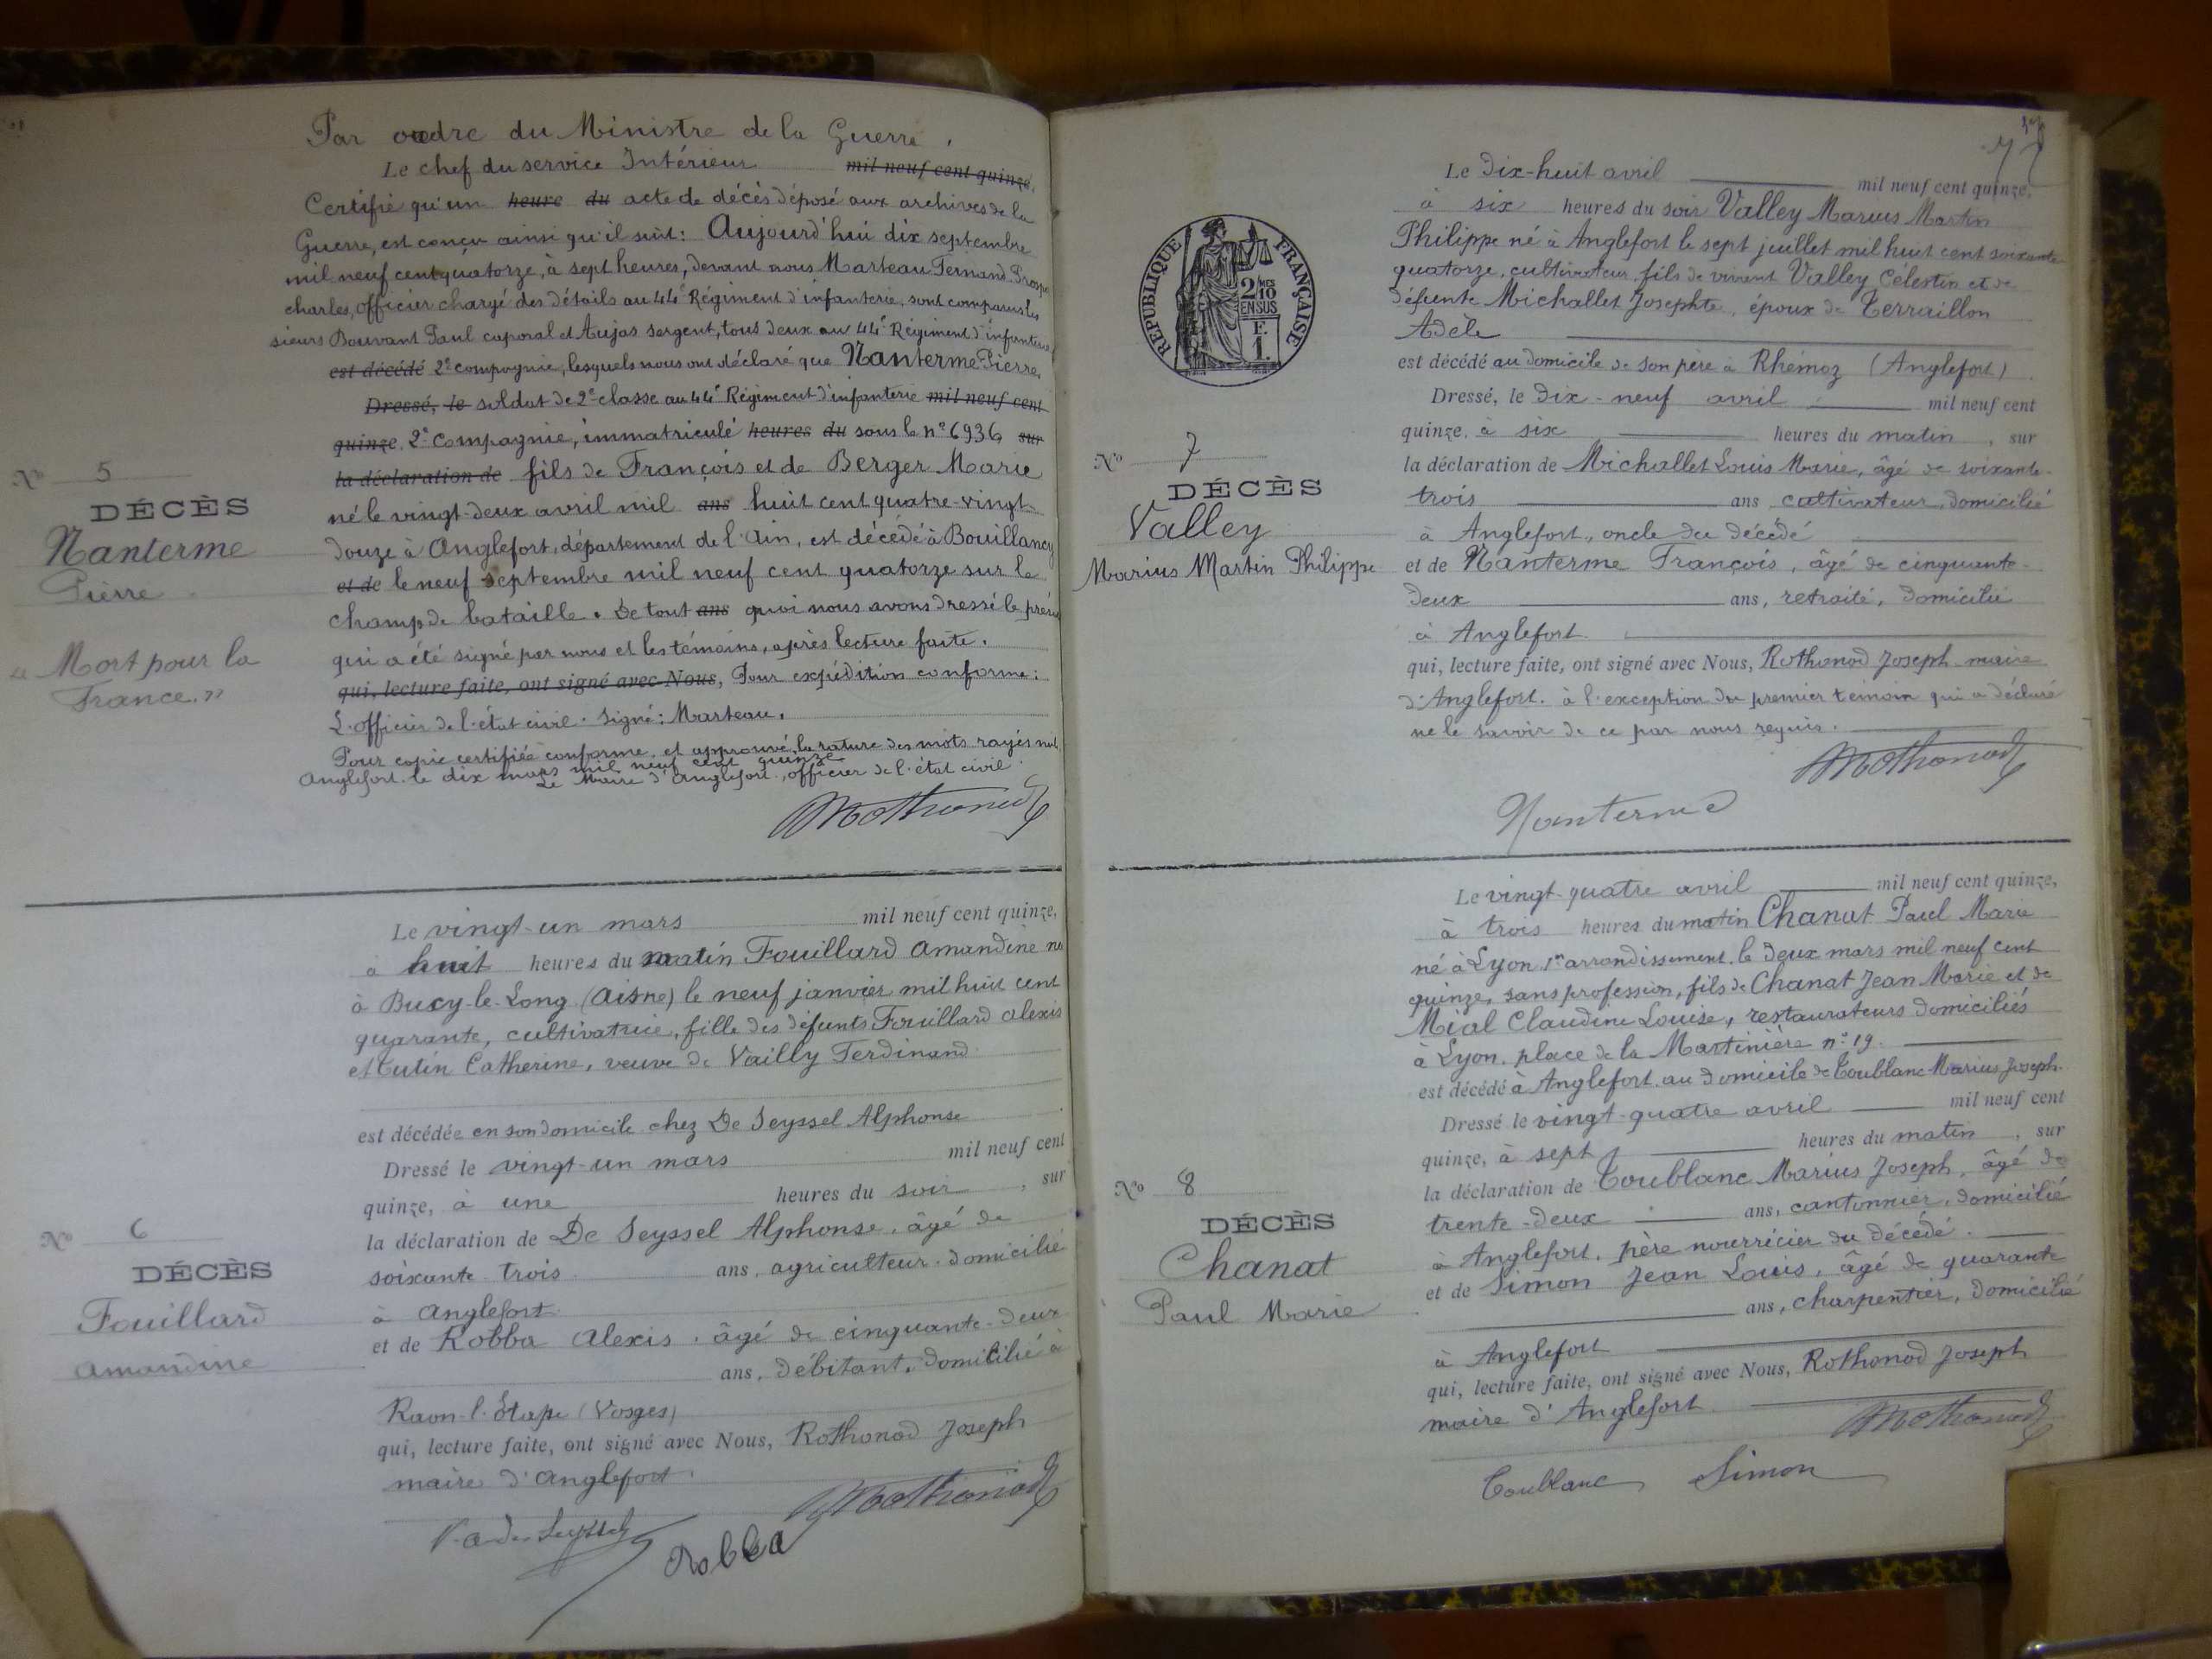 Par ordre du Ministre de la Guerre,
Le chef du service Intérieur mil neuf cent quinze,
Certifie qu'un heure du acte de décès déposé aux archives de la
Guerre, est conçu ainsi qu'il suit: Aujourd'hui dix septembre
mil neuf cent quatorze, à sept heures, devant nous Marteau Fernand
charles, officier chargé des détails au 44e Régiment d'infanterie, sont comparus les
sieurs Bouvant Paul caporal et Aujas sergent, tous deux au 44e Régiment d'infanterie
est décédé 2e compagnie, lesquels nous ont déclaré que Nanterme Pierre,
Dressé, le soldat de 2e classe au 44e Régiment d'infanterie mil neuf cent
quinze 2e compagnie, immatriculé heures du sous le no 6936, sur
la déclaration de fils de François et de Berger Marie
né le vingt-deux avril mil ans huit cent quatre-vingt-
douze à Anglefort, département de l'Ain, est décédé à Bouillancy
et de le neuf septembre mil neuf cent quatorze sur le
champ de bataille. De tout ans quoi nous avons dressé le
qui a été signé par nous et les témoins, après lecture faite.
qui, lecture faite, ont signé avec Nous, Pour expédition conforme:
L'officier de l'état civil. Signé: Marteau.
Pour copie certifiée conforme, et approuvé la rature des mots rayés nuls
Anglefort le dix mars mil neuf cent quinze
Le Maire d'Anglefort, officier de l'état civil
No 5
DÉCÈS
Nanterme
Pierre
« Mort pour la
France. »
Le vingt-un mars mil neuf cent quinze,
à huit heures du matin Fouillard Amandine née
à Bucy-le-Long (Aisne) le neuf janvier mil huit cent
quarante, cultivatrice, fille des défunts Fouillard Alexis
et Cutin Catherine, veuve de Vailly Ferdinand
est décédée en son domicile chez De Seyssel Alphonse
Dressé le vingt-un mars mil neuf cent
quinze, à une heures du soir, sur
la déclaration de De Seyssel Alphonse, âgé de
soixante trois ans, agriculteur, domicilié
à Anglefort
et de Robba Alexis, âgé de cinquante-deux
ans, débitant, domicilié à
Raon-l'Étape (Vosges)
qui, lecture faite, ont signé avec Nous, Rothonod Joseph
maire d'Anglefort.
Robba
No 6
DÉCÈS
Fouillard
Amandine
RÉPUBLIQUE FRANÇAISE
2/10 MES
EN SUS
F.
1.
Le dix-huit avril mil neuf cent quinze,
à six heures du soir Valley Marius Martin
Philippe né à Anglefort le sept juillet mil huit cent soixante
quatorze, cultivateur, fils de vivant Valley Célestin et de
défunte Michallet Josephte, époux de Terraillon
Adèle
est décédé au domicile de son père à Rhémoz (Anglefort)
Dressé, le dix-neuf avril mil neuf cent
quinze, à six heures du matin, sur
la déclaration de Michallet Louis Marie, âgé de soixante-
trois ans, cultivateur, domicilié
à Anglefort, oncle du décédé
et de Nanterme François, âgé de cinquante-
deux ans, retraité, domicilié
à Anglefort
qui, lecture faite, ont signé avec Nous, Rothonod Joseph maire
d'Anglefort. à l'exception du premier temoin qui a déclaré
ne le savoir de ce par nous requis.
Rothonod
Nanterme
No 7
DÉCÈS
Valley
Marius Martin Philippe
Le vingt-quatre avril mil neuf cent quinze,
à trois heures du matin Chanat Paul Marie
né à Lyon 1er arrondissement, le deux mars mil neuf cent
quinze, sans profession, fils de Chanat Jean Marie et de
Mial Claudine Louise, restaurateurs domiciliés
à Lyon, place de la Martinière no 19.
est décédé à Anglefort au domicile de Coublanc Marius Joseph.
Dressé le vingt-quatre avril mil neuf cent
quinze, à sept heures du matin, sur
la déclaration de Coublanc Marius Joseph, âgé de
trente-deux ans, cantonnier, domicilié
à Anglefort. père nourricier du décédé.
et de Simon Jean Louis, âgé de quarante
ans, charpentier, domicilié
à Anglefort
qui, lecture faite, ont signé avec Nous, Rothonod Joseph
maire d'Anglefort
Rothonod
Coublanc Simon
No 8
DÉCÈS
Chanat
Paul Marie